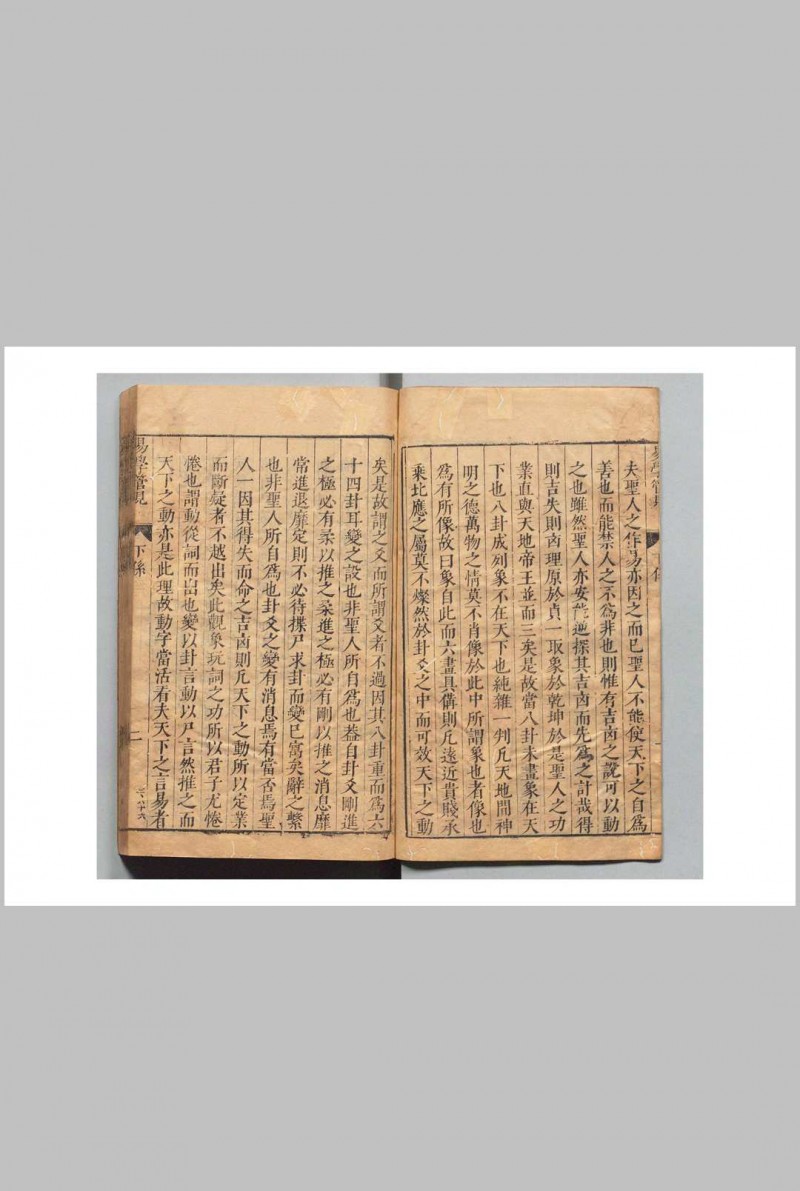 夫聖人之作易亦因之而已聖人不能使天下之自爲
善也而能禁人之不爲非也則惟有吉凶之說可以動
之也雖然聖人亦安能逆探其吉凶而先爲之計哉得
則吉失則凶理原於貞一取象於乾坤於是聖人之功
業直與天地帝王並而三矣是故當八卦未畫象在天
下也八卦成列象不在天下也純雜一判凡天地間神
明之德萬物之情莫不肖像於此中所謂象也者像也
爲有所像故曰象自此而六畫具備則凡遠近貴賤承
乘比應之屬莫不燦然於卦爻之中而可效天下之動
矣是故謂之爻而所謂爻者不過因其八卦重而爲六
十四卦耳變之設也非聖人所自爲也葢自卦爻剛進
之極必有柔以推之柔進之極必有剛以推之消息靡
常進退靡定則不必待揲尸求卦而變已寓矣辭之繫
也非聖人所自爲也卦爻之變有消息焉有當否焉聖
人一因其得失而命之吉凶則凡天下之動所以定業
而斷疑者不越出矣此觀象玩詞之功所以君子尤惓
惓也謂動從詞而出也變以卦言動以尸言然推之而
天下之動亦是此理故動字當活有夫天下之言易者
易學管見
下係
二
三、八十六